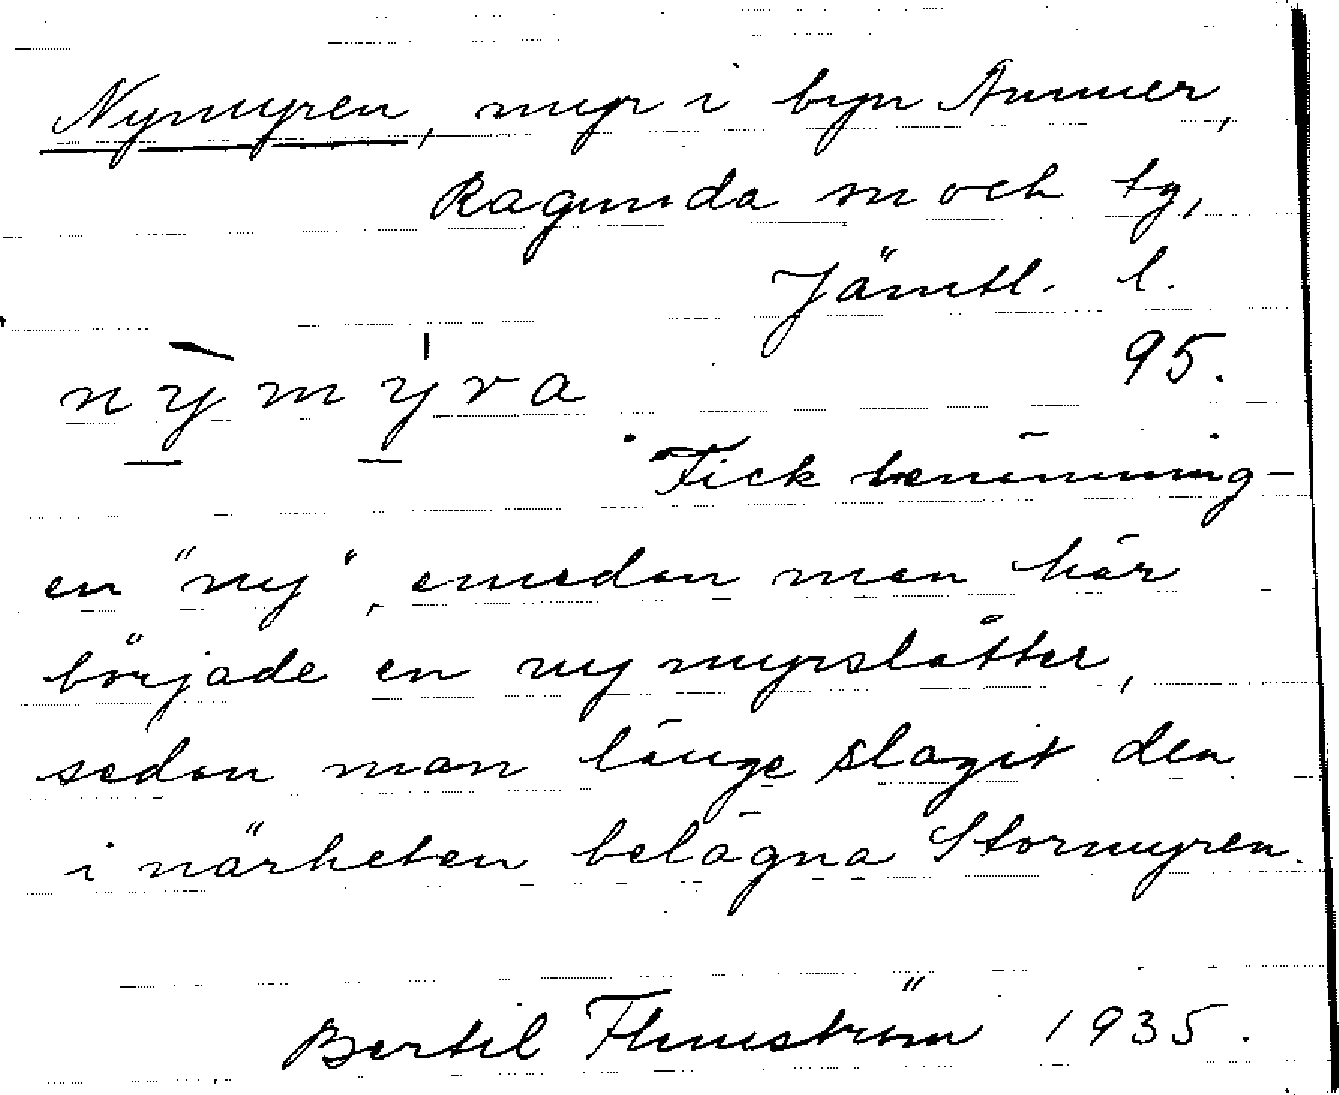 Nymyren, myr i byn Ammer,
Ragunda sn och tg,
Jämtl. l.
95.
nỳmýra
Fick benämning-
en "ny", emedan man här
började en ny myrslåtter,
sedan man länge slagit den
i närheten belägna Stormyren.
Bertil Flemström 1935.